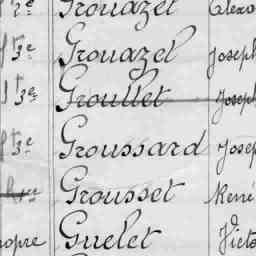 Grouazel
f 3e Grouazel Joseph
f 3e Groullet Joseph
f 3e Groussard Josep
Grousset René
opre Guelet Victo